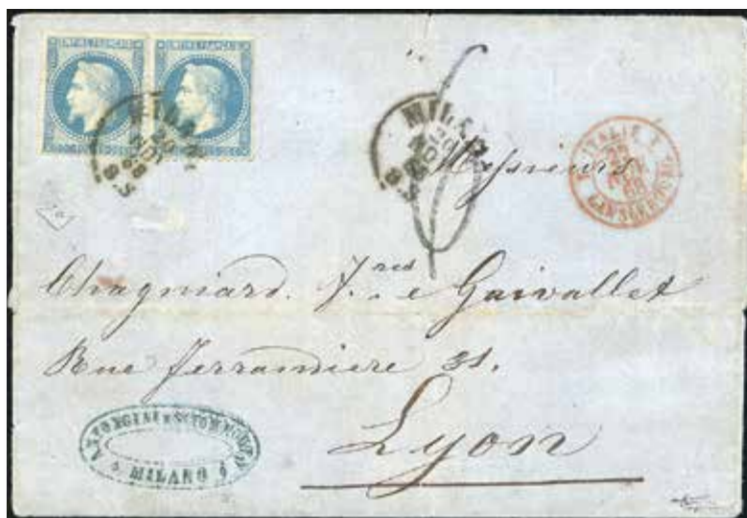 EMPIRE FRANÇAIS EMPIRE FRANÇAIS
MILANO
20
NOV
68
8 S
MILANO
20
NOV
68
8 S
6
ITALIE
LANSLEBOURG
Messieurs
Chagniard. F.res e Gaivallet
Rue Ferrandiere 31.
Lyon
MILANO